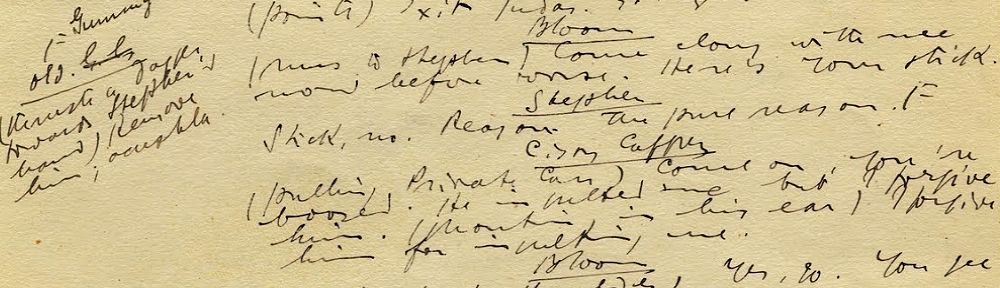 Gummy
old.
(thrusts a dagger
towards Stephen's
hand) Remove
him, acushla.
(points) Exit Judas.
Bloom
(runs to Stephen) Come along with me
now before worse. Here's your stick.
Stephen
Stick, no. Reason. The pure reason. F
Cissy Caffrey
(pulling Private Carr) Come on, you're
boosed. He insulted me but I forgive
him. (shouting in his ear) I forgive
him for insulting me.
Bloom
Yes, go. You see